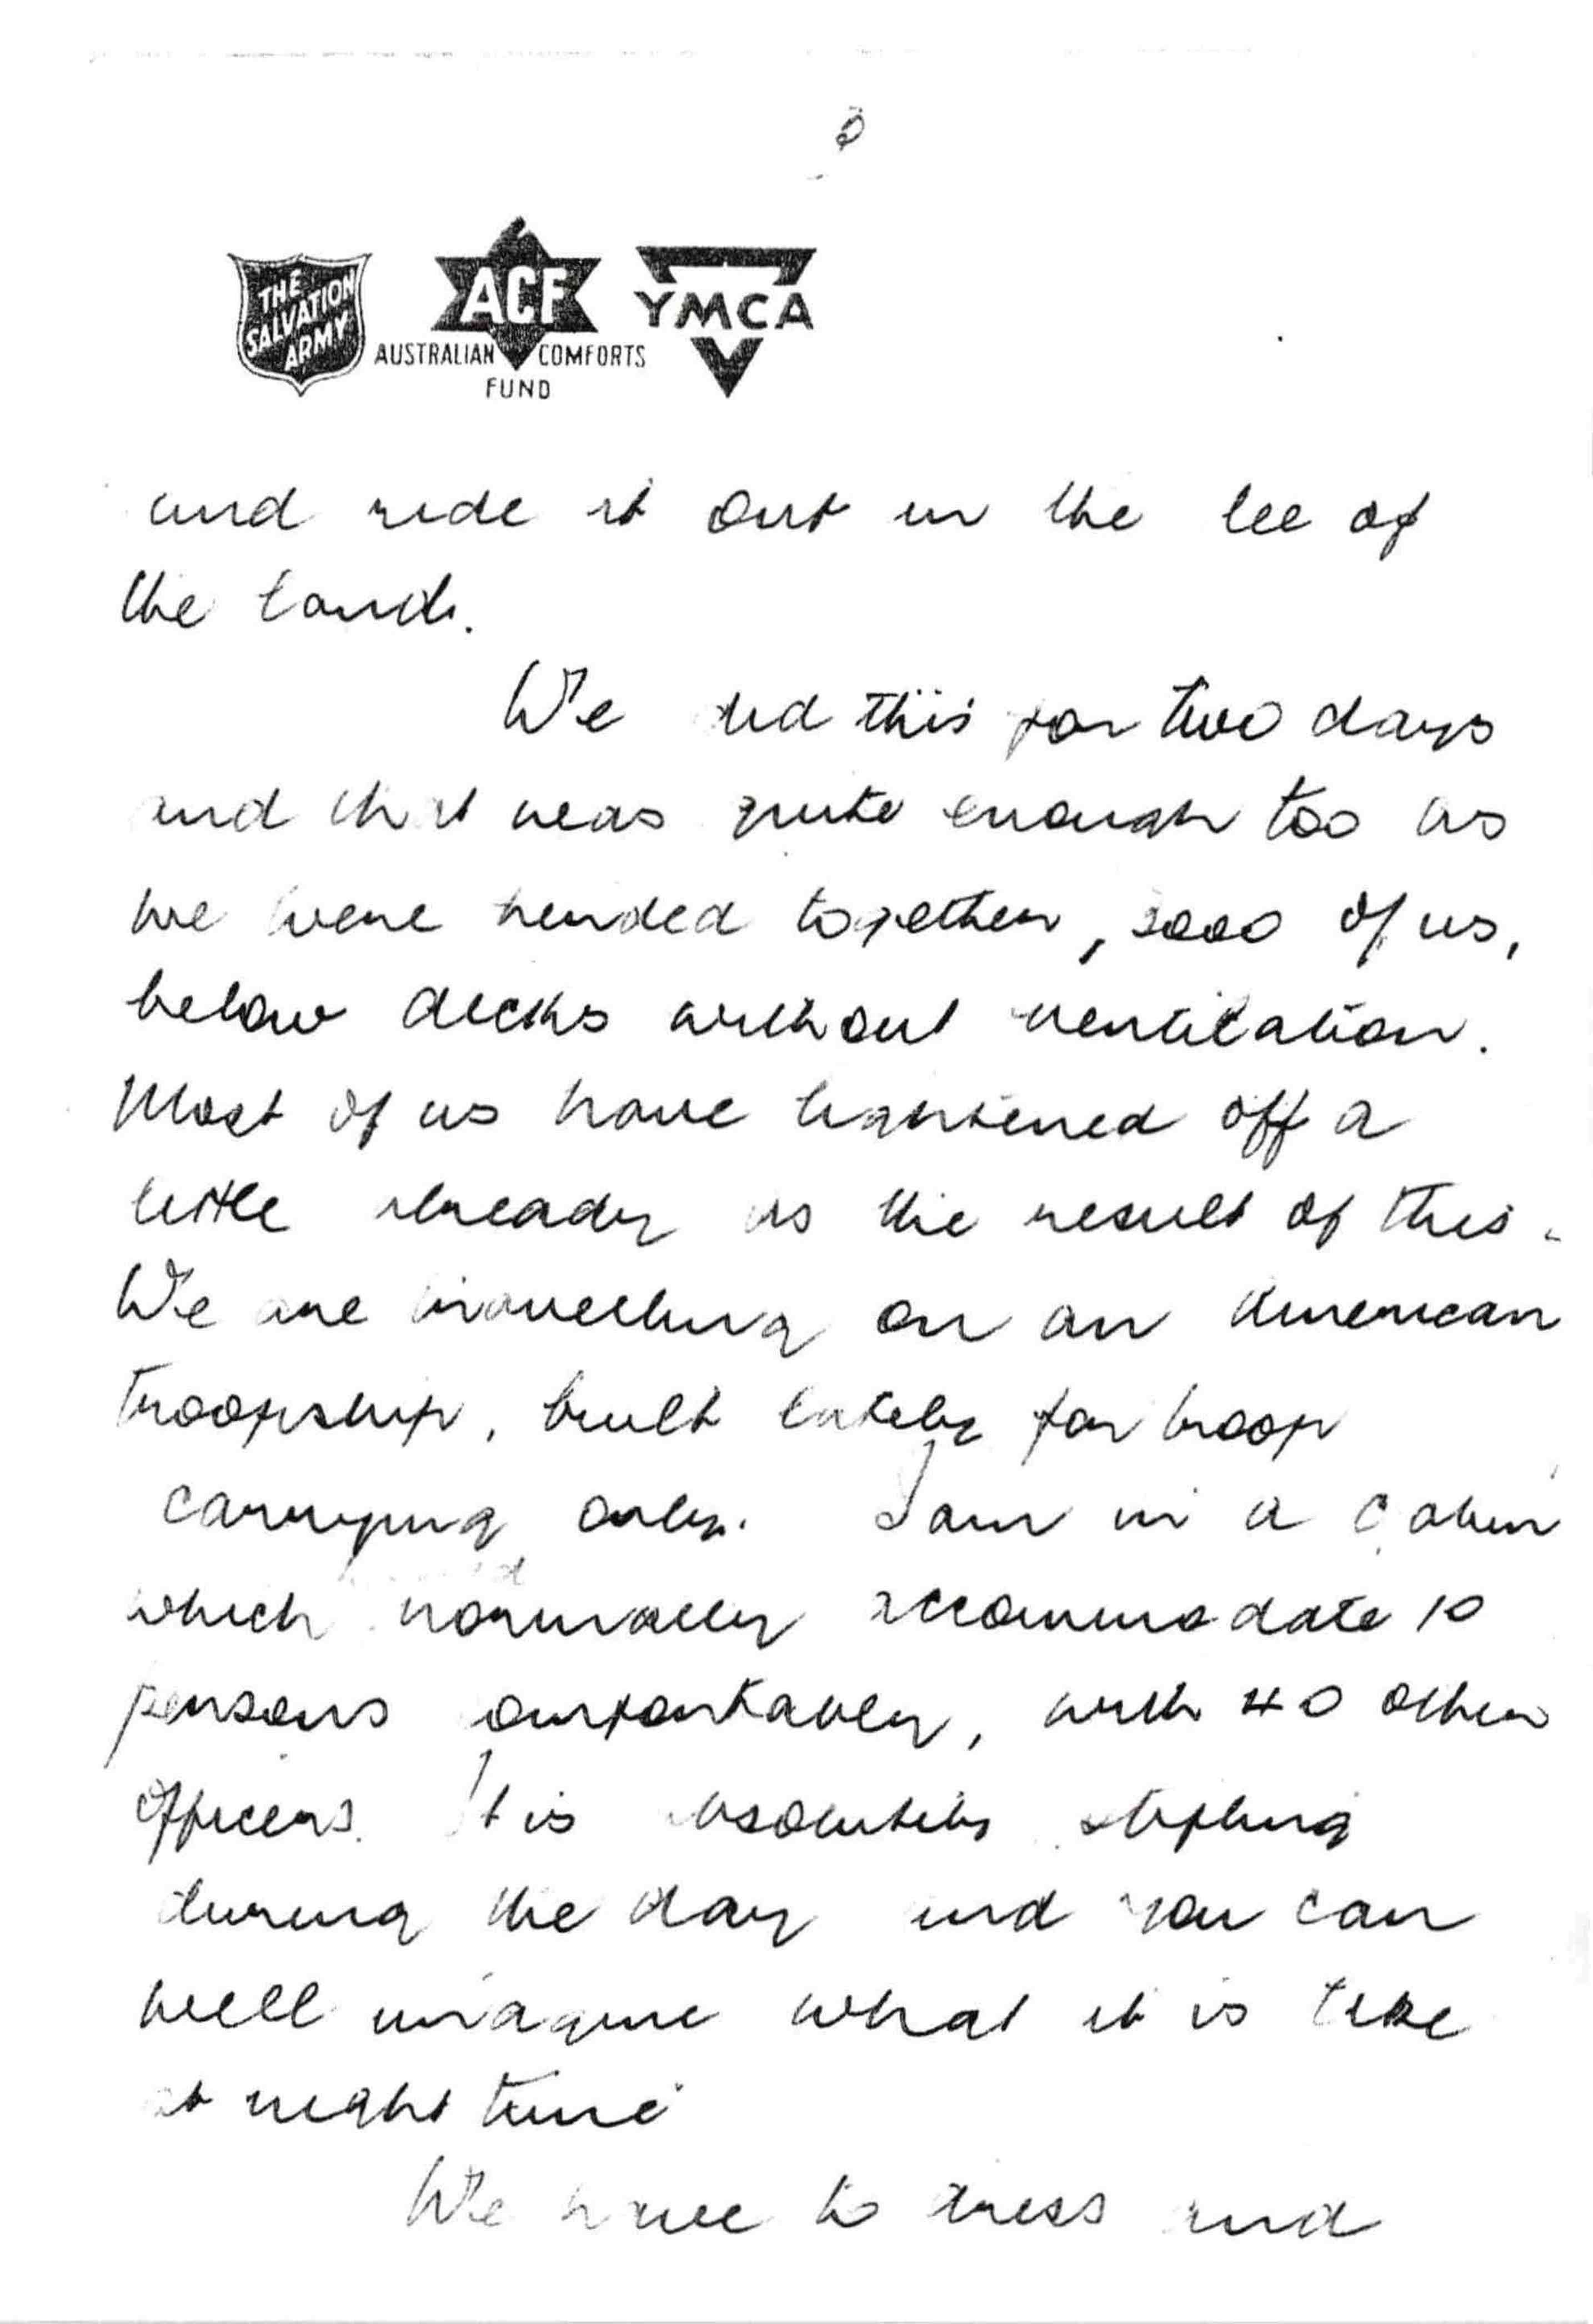 THE SALVATION ARMY
ACF
AUSTRALIAN COMFORTS FUND
YMCA
and ride it out in the lee of
the land.
We did this for two days
and that was quite enough too as
we were herded together, of us,
below decks without ventilation.
Most of us have lightened off a
little already as the result of this.
We are travelling on an American
troopship, built lately for troop
carrying only. I am in a cabin
which normally accommodate 10
persons comfortably, with 40 other
officers. It is absolutely stifling
during the day and you can
well imagine what it is like
at night time
We have to dress and